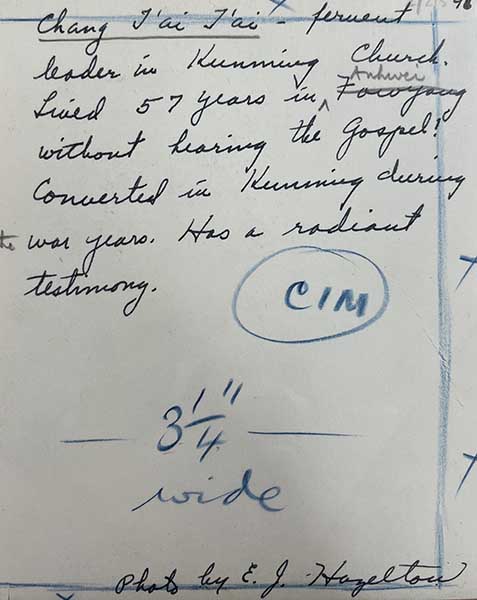 Chang T'ai T'ai - fervent
leader in Kunming Church.
Anhwei
Lived 57 years in ^
without hearing the Gospel!
Converted in Kunming during
the war years. Has a radiant
testimony.
CIM
3 1/4"
wide
Photo by E. J. Hazelton